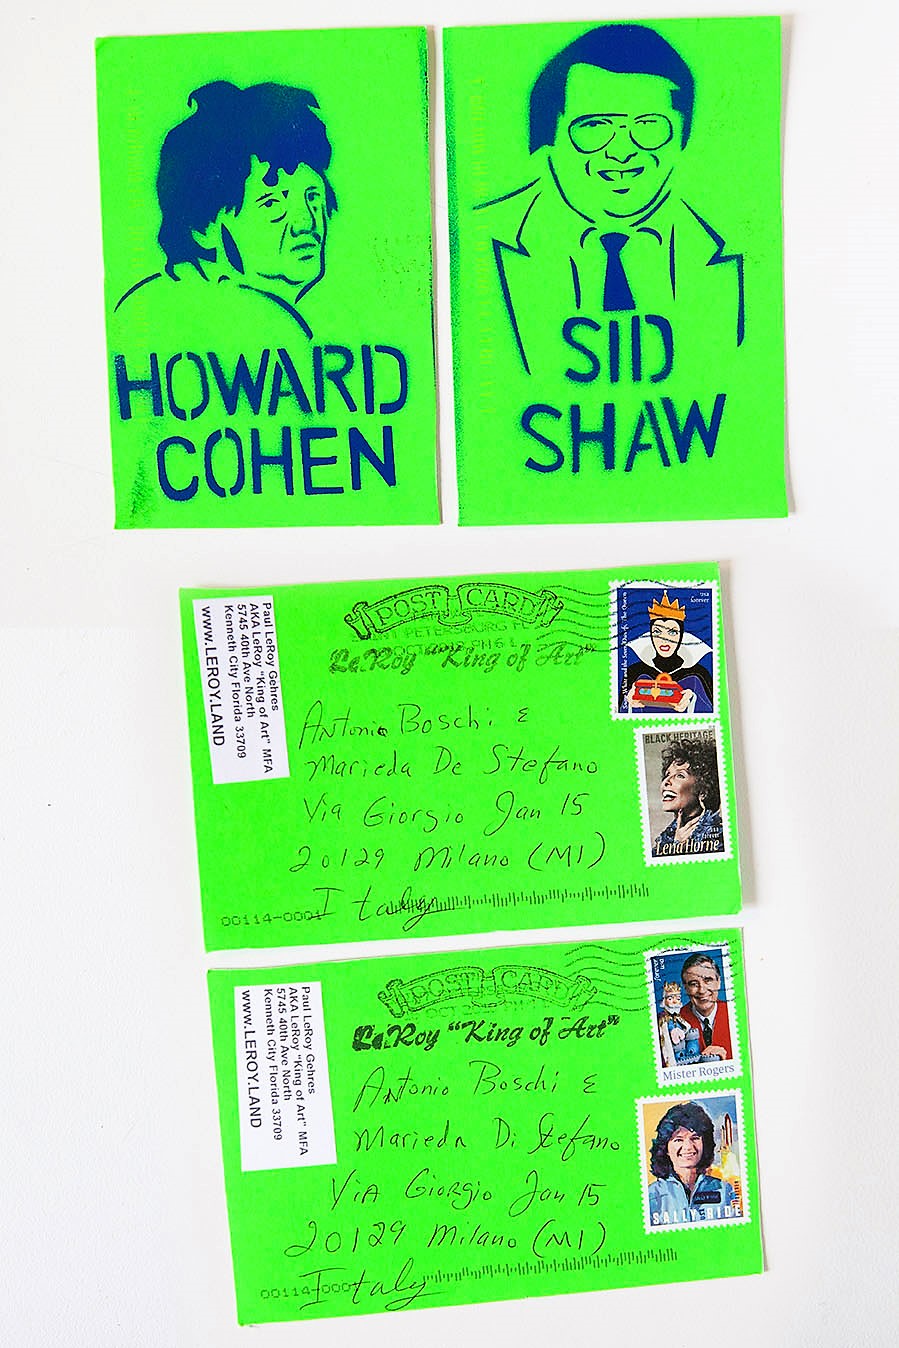 HOWARD
COHEN
SID
SHAW
Paul LeRoy Gehres
AKA LeRoy "King of Art" MFA
5745 40th Ave North
Kenneth City Florida 33709
www.LEROY.LAND
POST CARD
ST PETERSBURG FL
LeRoy "King of Art"
Antonio Boschi &
Marieda De Stefano
Via Giorgio Jan 15
20129 Milano (MI)
Italy
00114-0001
usa
forever
Snow White and the Seven Dwarfs, The Queen
BLACK HERITAGE
usa
forever
Lena Horne
Paul LeRoy Gehres
AKA LeRoy "King of Art" MFA
5745 40th Ave North
Kenneth City Florida 33709
www.LEROY.LAND
POST CARD
LeRoy "King of Art"
Antonio Boschi &
Marieda Di Stefano
Via Giorgio Jan 15
20129 Milano (MI)
Italy
00114-0001
forever usa
Mister Rogers
SALLY RIDE